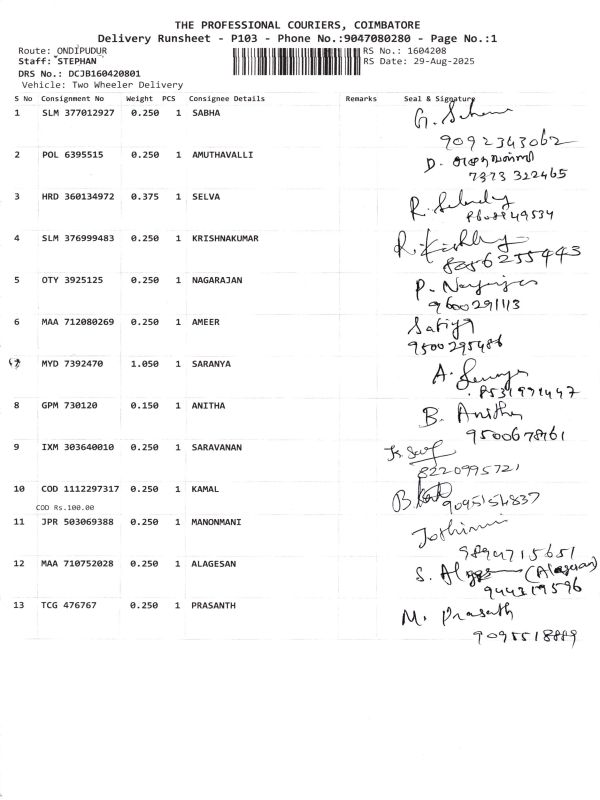 THE PROFESSIONAL COURIERS, COIMBATORE
Delivery Runsheet - P103 - Phone No.:9047080280 - Page No.:1
Route: ONDIPUDUR RS No.: 1604208
Staff: STEPHAN RS Date: 29-Aug-2025
DRS No.: DCJB160420801
Vehicle: Two Wheeler Delivery
S No Consignment No Weight PCS Consignee Details Remarks Seal & Signature
1 SLM 377012927 0.250 1 SABHA G.
9092343062
2 POL 6395515 0.250 1 AMUTHAVALLI D.
7373 322465
3 HRD 360134972 0.375 1 SELVA R.
4 SLM 376999483 0.250 1 KRISHNAKUMAR R.
8256255443
5 OTY 3925125 0.250 1 NAGARAJAN P.
9600291113
6 MAA 712080269 0.250 1 AMEER Satiya
9500295486
MYD 7392470 1.050 1 SARANYA A.
8531991447
8 GPM 730120 0.150 1 ANITHA B. Anitha
9500678961
9 IXM 303640010 0.250 1 SARAVANAN
8220995721
10 COD 1112297317 0.250 1 KAMAL B.
9095154837
COD Rs.100.00
11 JPR 503069388 0.250 1 MANONMANI Jothimani
9894715651
12 MAA 710752028 0.250 1 ALAGESAN S. (Alagesan)
944319596
13 TCG 476767 0.250 1 PRASANTH M. Prasath
9095518889